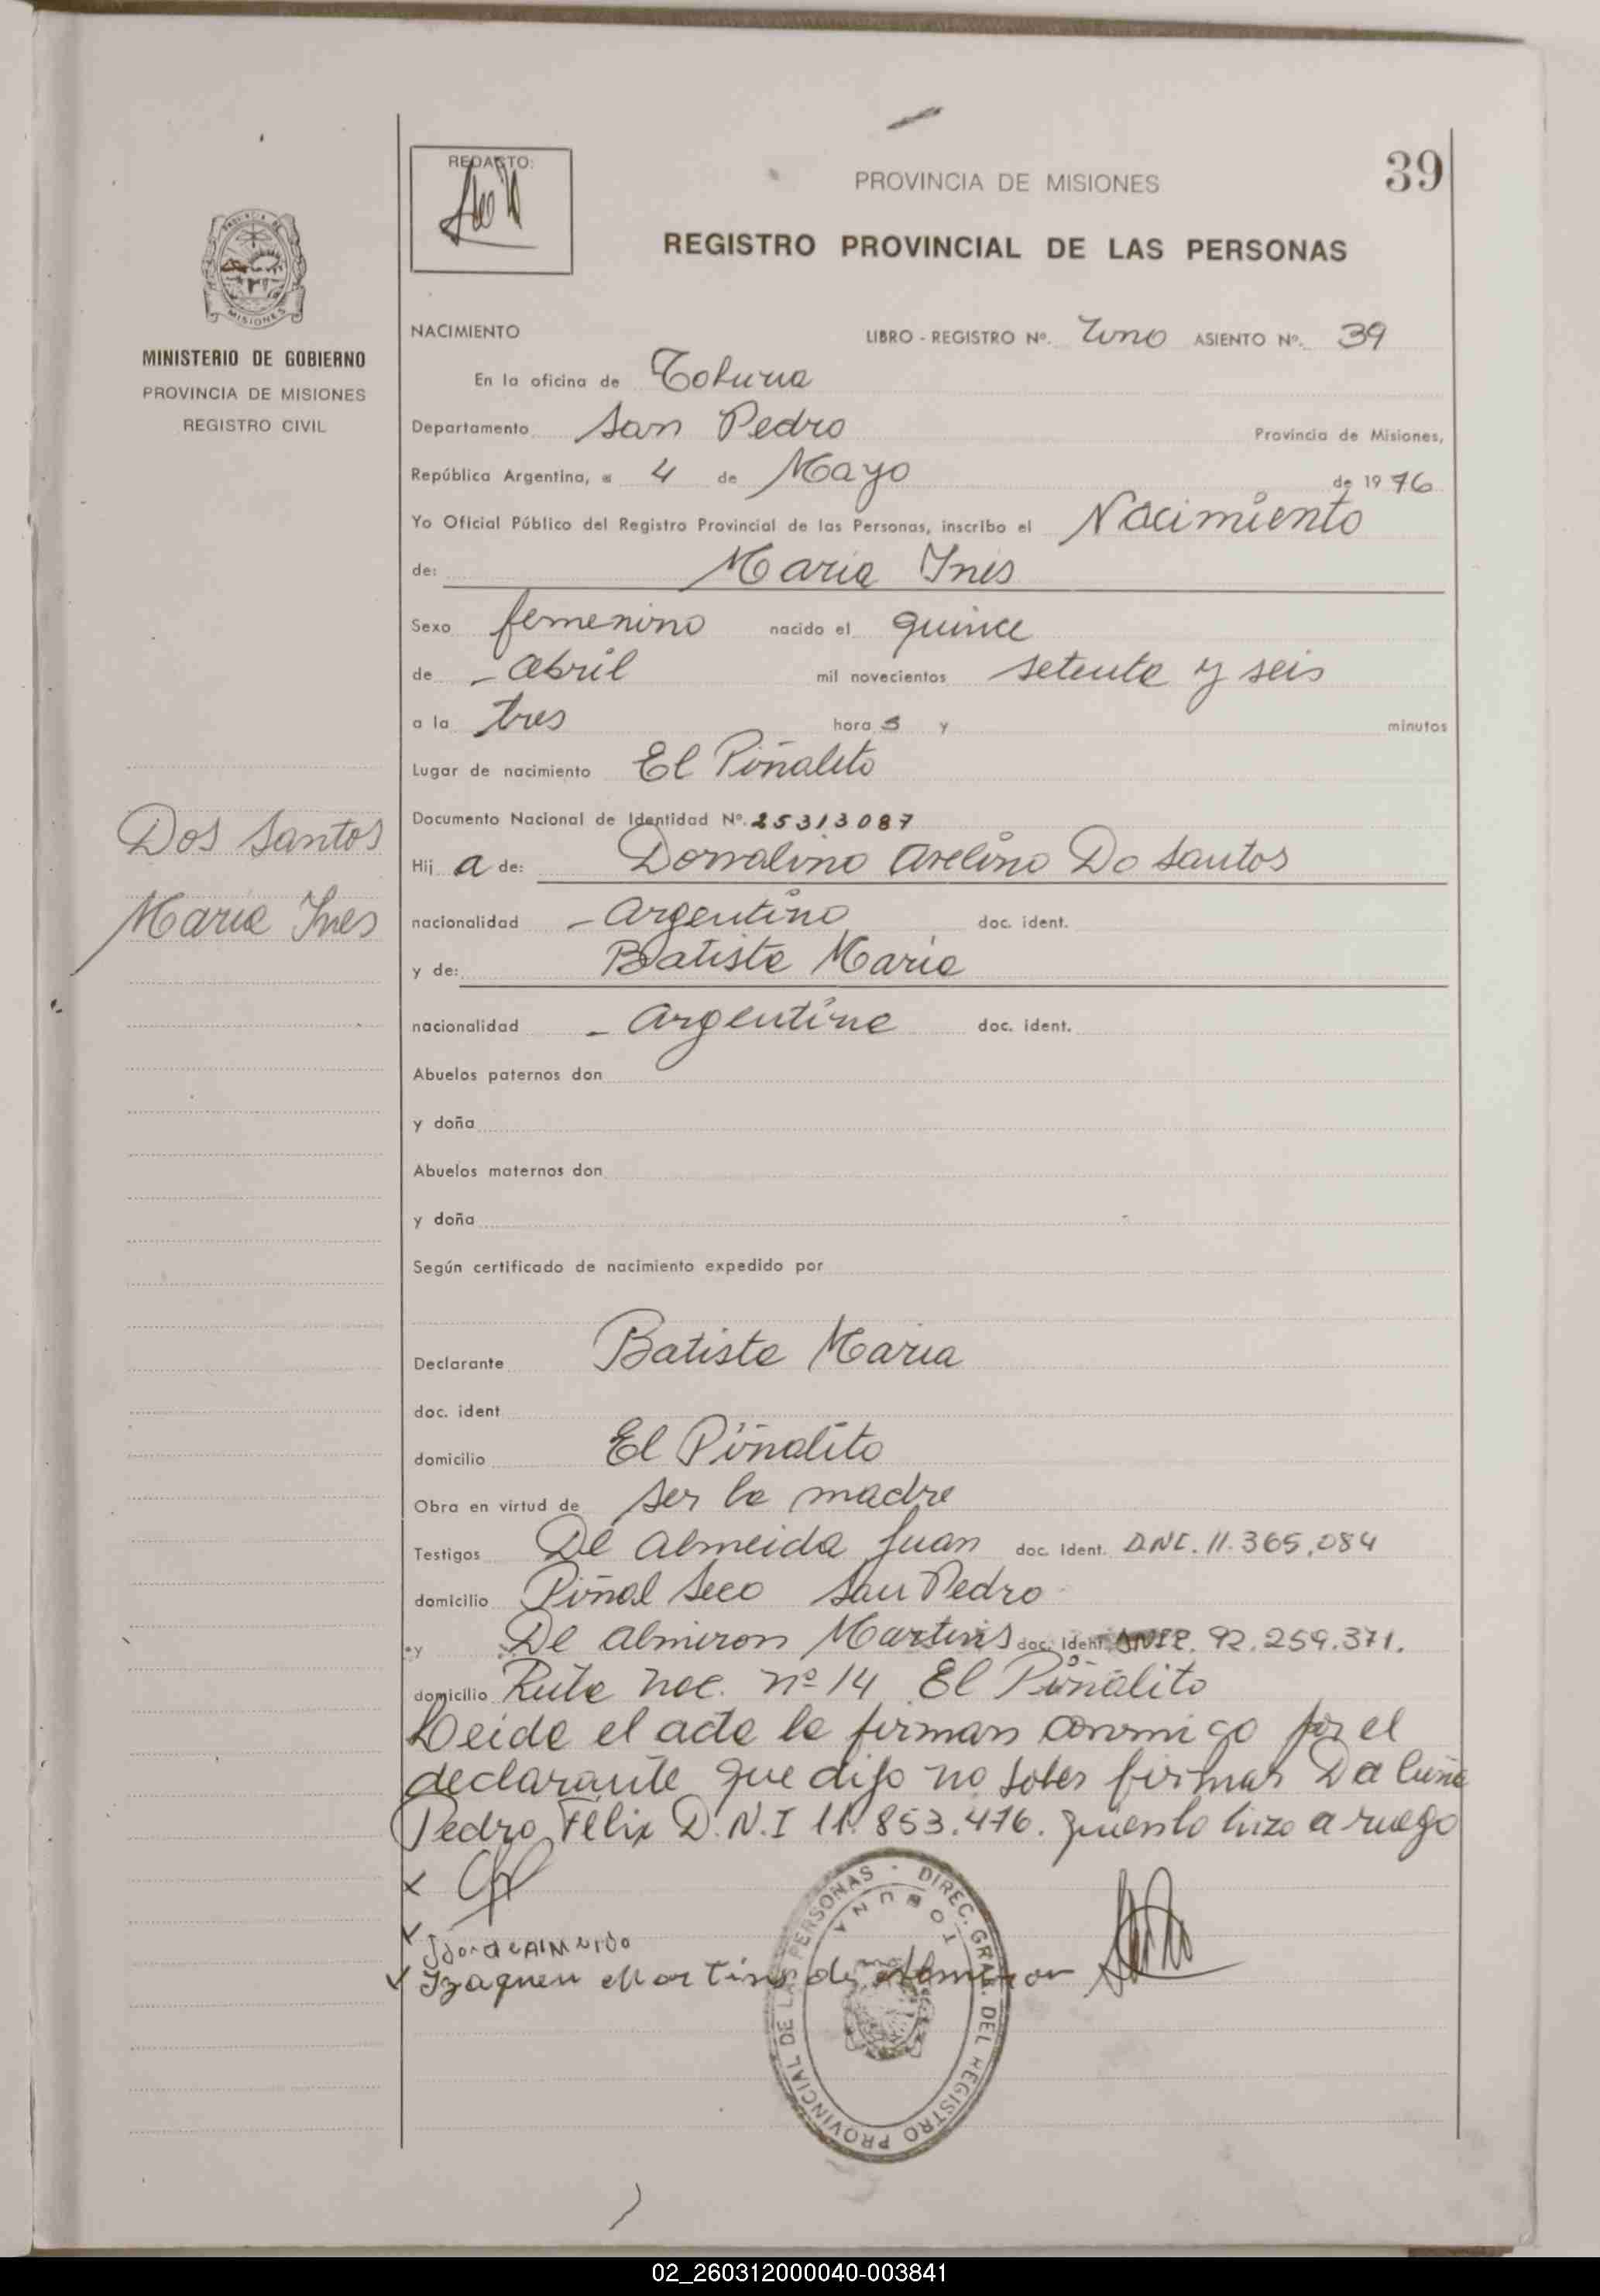 REDACTO:
PROVINCIA DE MISIONES
39
REGISTRO PROVINCIAL DE LAS PERSONAS
MISIONES
MINISTERIO DE GOBIERNO
PROVINCIA DE MISIONES
REGISTRO CIVIL
NACIMIENTO LIBRO - REGISTRO Nº. Uno ASIENTO Nº. 39
En la oficina de Tobuna
Departamento San Pedro Provincia de Misiones,
República Argentina, a 4 de Mayo de 1976
Yo Oficial Público del Registro Provincial de las Personas, inscribo el Nacimiento
de: Maria Ines
Sexo femenino nacido el quince
de abril mil novecientos setenta y seis
a la tres hora s y minutos
Lugar de nacimiento El Piñalito
Documento Nacional de Identidad Nº. 25313087
Dos Santos
Maria Ines
Hij a de: Dorvalino Avelino Do Santos
nacionalidad - Argentino doc. ident.
y de: Batista Maria
nacionalidad - Argentina doc. ident.
Abuelos paternos don
y doña
Abuelos maternos don
y doña
Según certificado de nacimiento expedido por
Declarante Batista Maria
doc. ident
domicilio El Piñalito
Obra en virtud de ser la madre
Testigos De Almeida Juan doc. Ident. DNI. 11.365.084
domicilio Piñal Seco San Pedro
y De Almiron Martins doc. Ident. 92.259.371.
domicilio Ruta nac. nº 14 El Piñalito
Leida el acta la firman conmigo por el
declarante que dijo no saber firmar Da Cuña
Pedro Felix D.N.I 11.853.476. quien lo hizo a ruego
x
Martins de Almiron
DIREC. GRAL. DEL REGISTRO PROVINCIAL DE LAS PERSONAS
TOBUNA
02_260312000040-003841